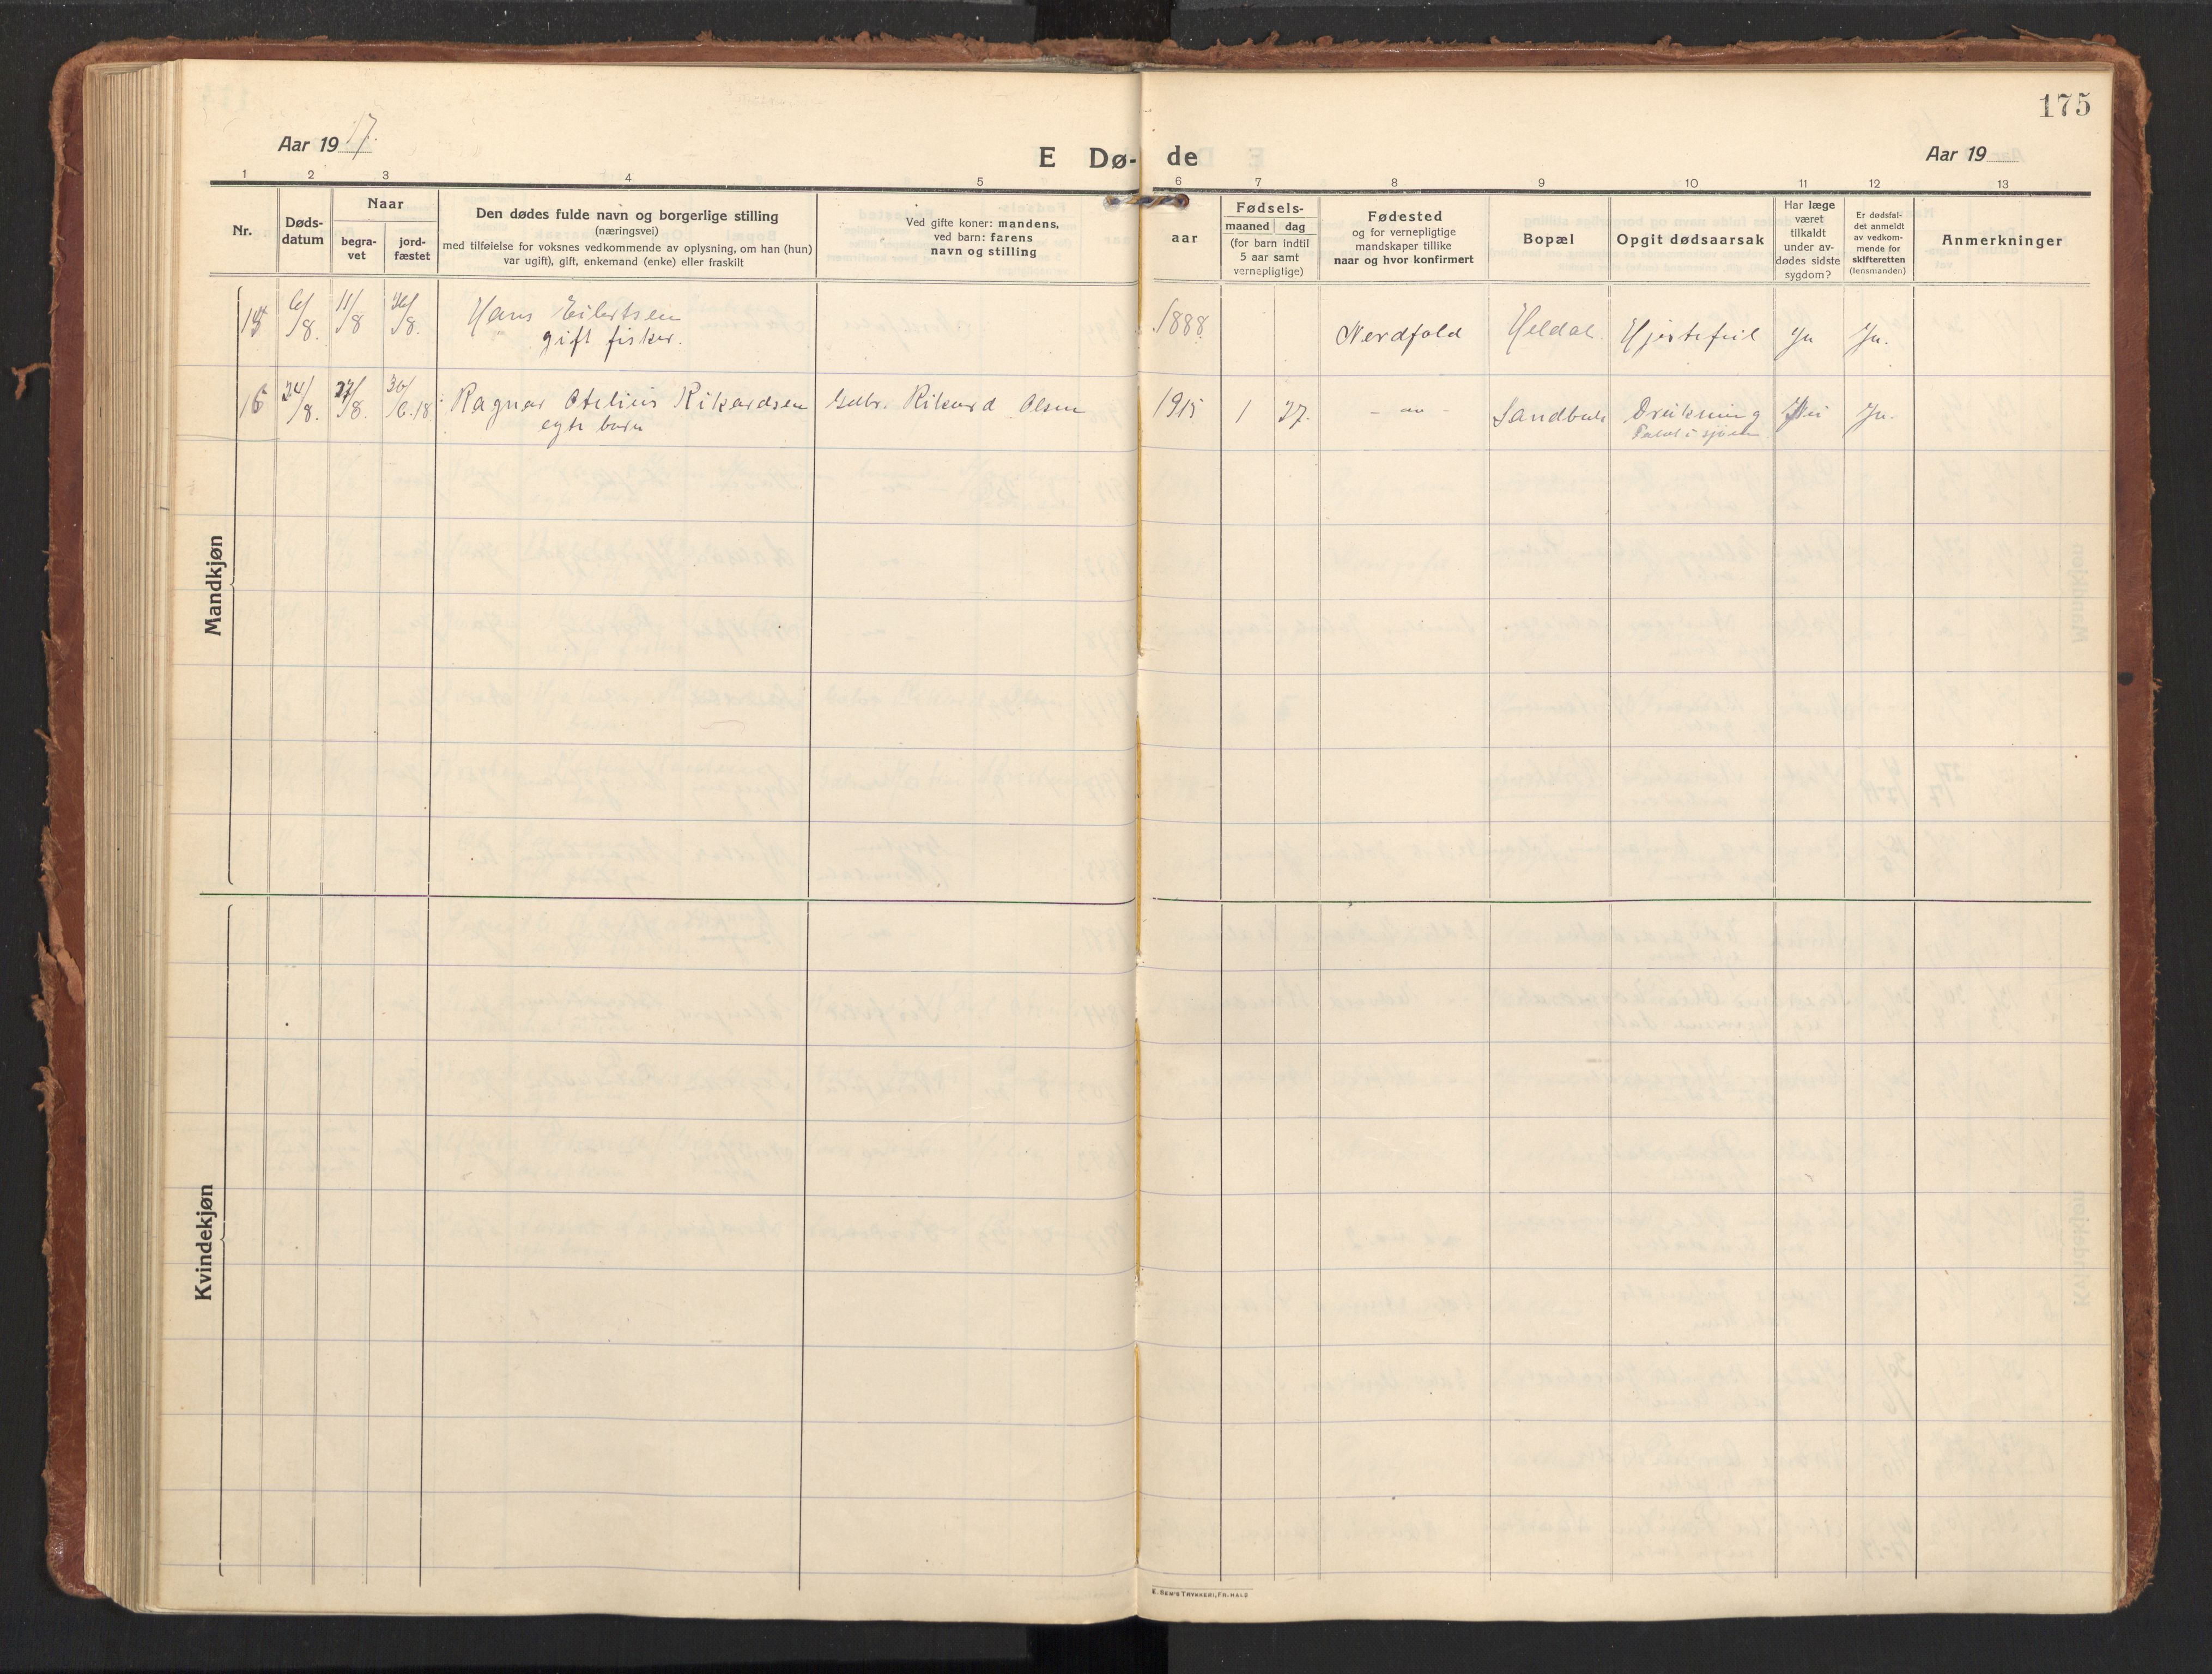 175
Aar 1917.
E Dø-
de
Aar 19
1 2 3 4 5 6 7 8 9 10 11 12 13
Nr.
Døds-
datum
Naar
begra-
vet
jord-
fæstet
Den dødes fulde navn og borgerlige stilling
(næringsvei)
med tilføielse for voksnes vedkommende av oplysning, om han (hun)
var ugift), gift, enkemand (enke) eller fraskilt
Ved gifte koner: mandens,
ved barn: farens
navn og stilling
aar
Fødsels-
maaned dag
(for barn indtil
5 aar samt
vernepligtige)
Fødested
og for vernepligtige
mandskaper tillike
naar og hvor konfirmert
Bopæl
Opgit dødsaarsak
Har læge
været
tilkaldt
under av-
dødes sidste
sygdom?
Er dødsfal-
det anmeldt
av vedkom-
mende for
skifteretten
(lensmanden)
Anmerkninger
Mandkjøn
15 6/8. 11/8 26/8. Hans Eilertsen 1888. Nordfold Heldal. Hjertefeil Ja Ja.
gift fisker.
16 24/8. 27/8. 30/6.18 Ragnar Otelius Rikardsen Gdbr. Rikard Olsen 1915 1 27. Drukning Nei Ja.
egte barn
Kvindekjøn
E. SEM'S TRYKKERI, FR.HALD